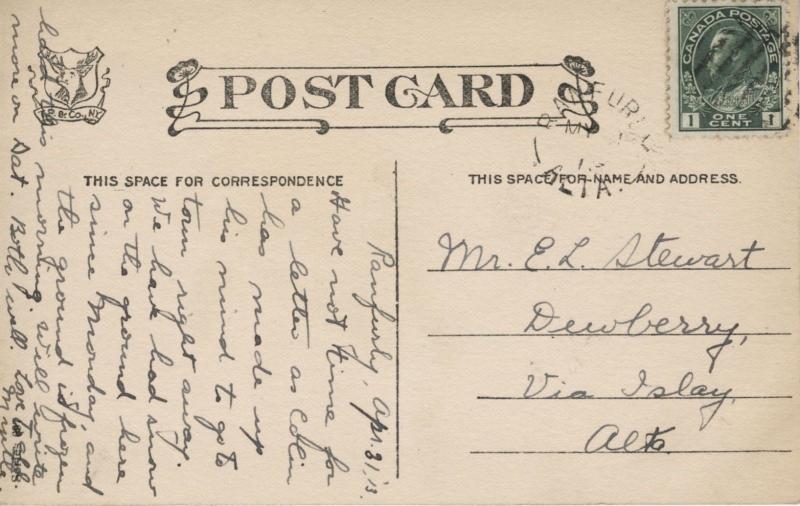 POST CARD
CANADA POSTAGE
1 ONE CENT 1
RANFURLY
ALTA.
B. B. Co., N.Y.
THIS SPACE FOR CORRESPONDENCE
THIS SPACE FOR NAME AND ADDRESS.
Ranfurly, Apr. 31, 13.
Have not time for
a letter as Colin
has made up
his mind to go to
town right away.
We have had snow
on the ground here
since Monday, and
the ground is frozen
hard this morning. Will write
more on Sat. Both well. Love
Mr. E. L. Stewart
Dewberry,
Via Islay,
Alta